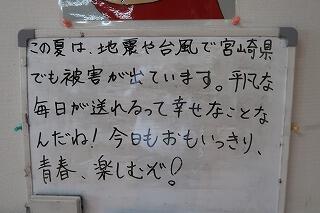 この夏は、地震や台風で宮崎県
でも被害が出ています。平凡な
毎日が送れるって幸せなことな
んだね！今日もおもいっきり、
青春、楽しむぞ！